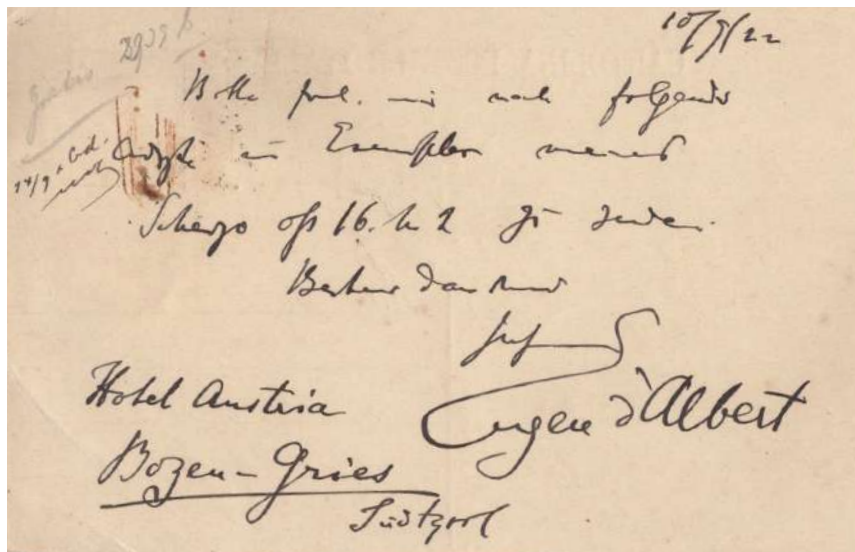 10/9/22
gratis
Bitte frdl. mir nach folgender
ein Exemplar meines
Scherzo op 16. No 2 zu senden.
Besten Dank
Eugen d'Albert
Hotel Austria
Bozen-Gries
Südtyrol